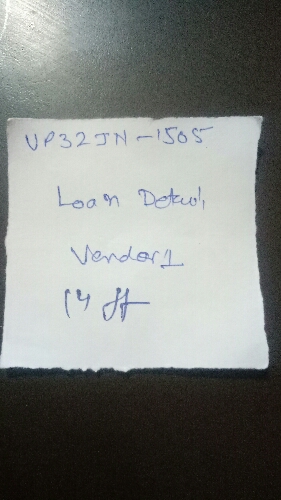 UP32JN-1505
Loan Detail,
Vendor1
14 ff